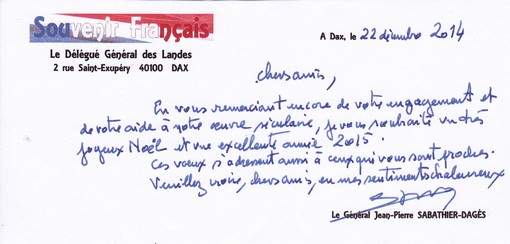 Souvenir Français
Le Délégué Général des Landes
2 rue Saint-Exupéry 40100 DAX
A Dax, le 22 décembre 2014
chers amis,
En vous remerciant encore de votre engagement et
de votre aide à notre œuvre séculaire, je vous souhaite un très
joyeux Noël et une excellente année 2015.
Ces vœux s'adressent aussi à ceux qui vous sont proches.
Veuillez croire, chers amis, en mes sentiments chaleureux
Le Général Jean-Pierre SABATHIER-DAGÈS